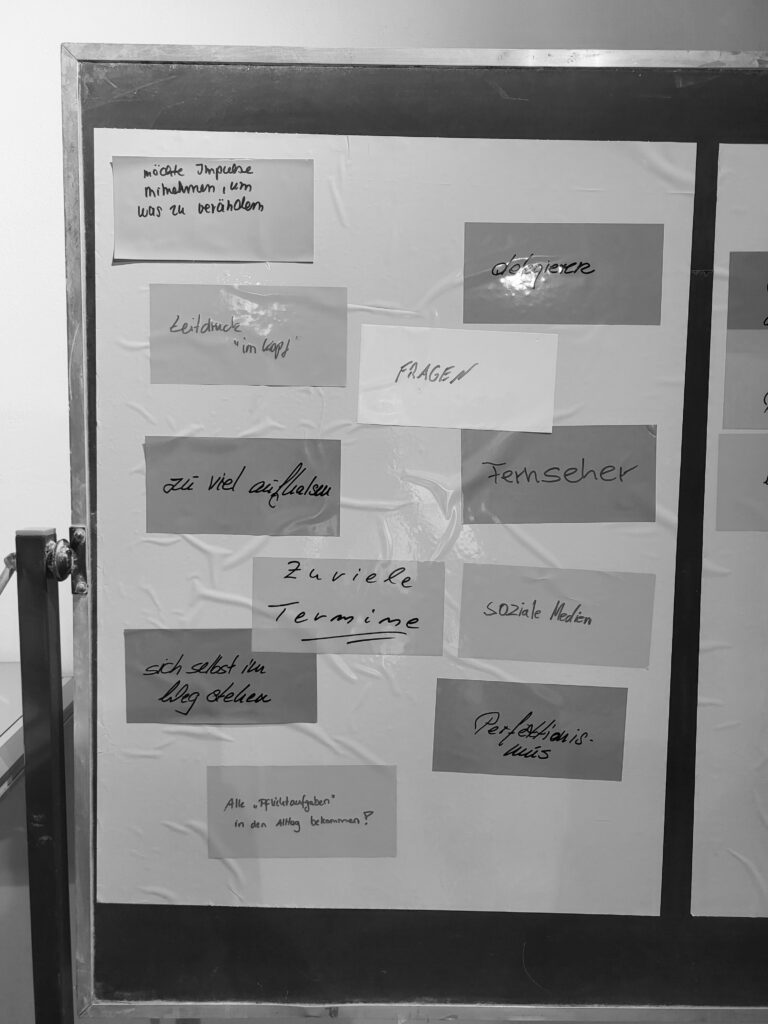 möchte Impulse
mitnehmen, um
was zu verändern
delegieren
Zeitdruck
"im Kopf"
FRAGEN
zu viel aufhalsen
Fernseher
Zuviele
Termine
soziale Medien
sich selbst im
Weg stehen
Perfektionis-
mus
Alle „Pflichtaufgaben"
in den Alltag bekommen?